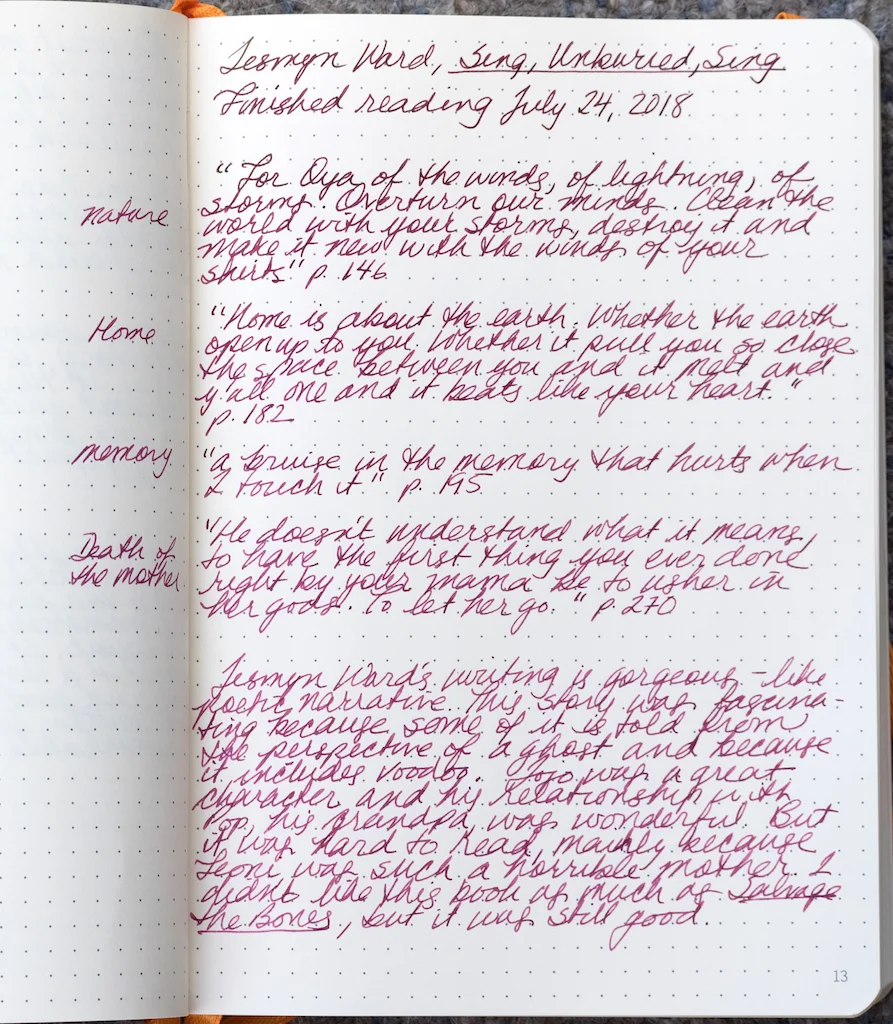 Jesmyn Ward, Sing, Unburied, Sing
Finished reading July 24, 2018
nature
"For Oya of the winds, of lightning, of
storms. Overturn our minds. Clean the
world with your storms, destroy it and
make it new with the winds of your
skirts" p. 146
Home
"Home is about the earth. Whether the earth
open up to you. Whether it pull you so close
the space between you and it melt and
y'all one and it beats like your heart."
p. 182
memory
"a bruise in the memory that hurts when
I touch it" p. 195
Death of
the mother
"He doesn't understand what it means,
to have the first thing you ever done
right by your mama be to usher in
her gods. To let her go." p. 270
Jesmyn Ward's writing is gorgeous – like
poetic narrative. This story was fascina-
ting because some of it is told from
the perspective of a ghost and because
it includes voodoo. Jojo was a great
character and his relationship with
Pop, his grandpa was wonderful. But
it was hard to read, mainly because
Leoni was such a horrible mother. I
didn't like this book as much as Salvage
the Bones, but it was still good.
13